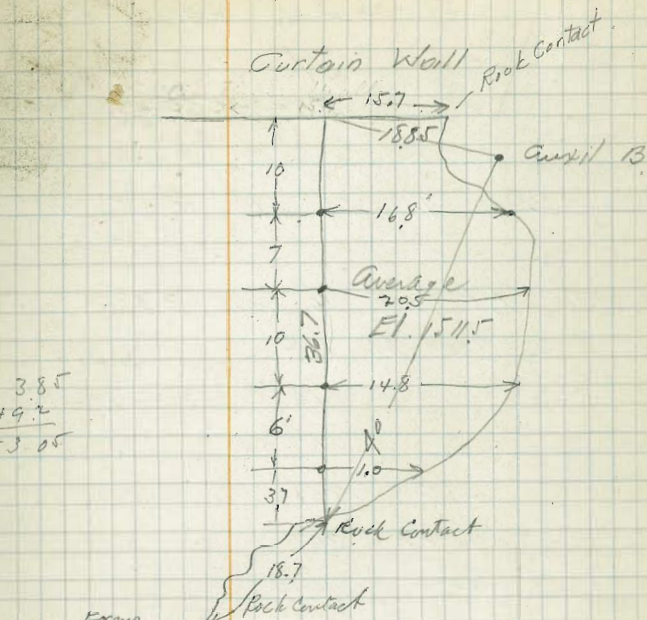 Curtain Wall
Rock Contact.
15.7
18.85
Auxil B
10
16.8'
7
Average
20.5
El. 1511.5
36.7
10
14.8
3.85
6'
3 05
1.0
3.7
Rock Contact
18.7
Rock Contact